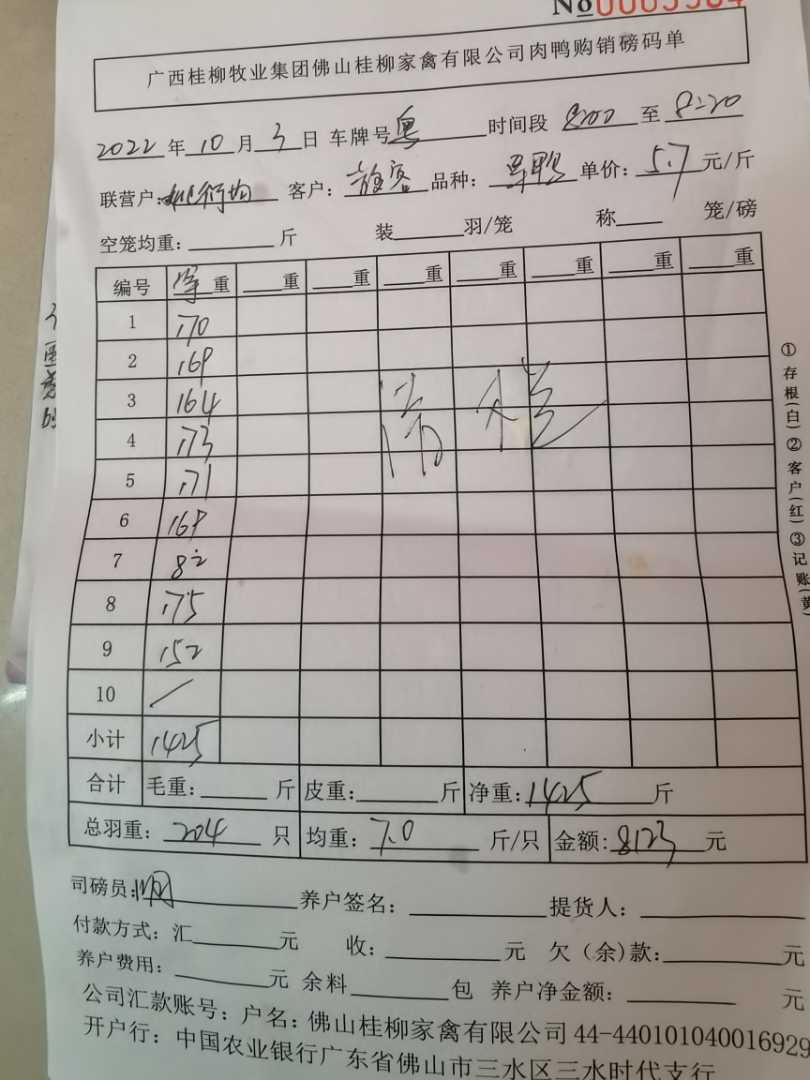 No0003564
广西桂柳牧业集团佛山桂柳家禽有限公司肉鸭购销磅码单
2022年10月3日 车牌号粤 时间段 8:00 至 8:20
联营户: 客户: 品种: 单价: 5.7 元/斤
空笼均重: 斤 装 羽/笼 称 笼/磅
编号 重 重 重 重 重 重 重 重
1 170
2 169
3 164
4 173
5 171
6 169
7 82
8 175
9 152
10 /
小计 1425
合计 毛重: 斤 皮重: 斤 净重: 1425 斤
总羽重: 204 只 均重: 7.0 斤/只 金额: 8123 元
司磅员: 养户签名: 提货人:
付款方式: 汇 元 收: 元 欠(余)款: 元
养户费用: 元 余料 包 养户净金额: 元
公司汇款账号: 户名: 佛山桂柳家禽有限公司 44-440101040016929
开户行: 中国农业银行广东省佛山市三水区三水时代支行
①存根(白)②客户(红)③记账(黄)